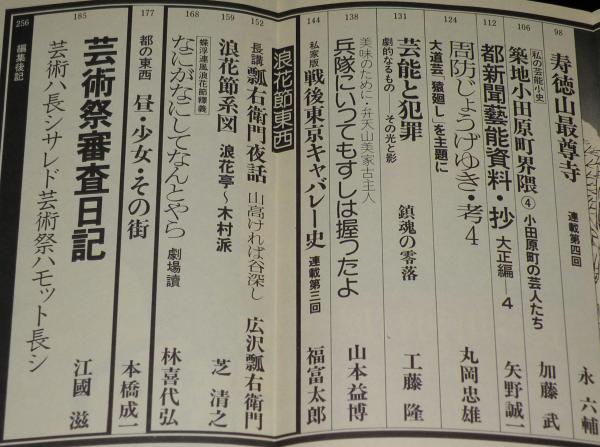 98
寿徳山最尊寺 連載第四回 永六輔
106
私の芸能小史
築地小田原町界隈④ 小田原町の芸人たち 加藤武
112
都新聞藝能資料・抄 大正編 4 矢野誠一
124
周防じょうげゆき・考4
大道芸「猿廻し」を主題に 丸岡忠雄
131
芸能と犯罪 鎮魂の零落 工藤隆
劇的なるもの その光と影
138
美味のために・弁天山美家古主人
兵隊にいってもすしは握つたよ 山本益博
144
私家版 戦後東京キャバレー史 連載第三回 福富太郎
浪花節東西
152
長講 瓢右衛門夜話 山高ければ谷深し 広沢瓢右衛門
159
浪花節系図 浪花亭〜木村派 芝清之
168
蝶浮連風浪花節釋義
なにがなにしてなんとやら 劇場讀 林喜代弘
177
都の東西 昼・少女・その街 本橋成一
185
芸術祭審査日記
芸術ハ長シサレド芸術祭ハモット長シ 江國滋
256
編集後記